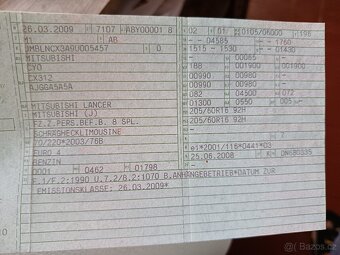 26.03.2009 7107 ABY00001 8
M1 AB
JMBLNCX3A9U005457 0
MITSUBISHI
CY0
CX312
AJGGA5A5A
MITSUBISHI LANCER
MITSUBISHI (J)
FZ.Z.PERS.BEF.B. 8 SPL.
SCHRÄGHECKLIMOUSINE
70/220*2003/76B
EURO 4
BENZIN
0001 0462 01798
02 01 0105/06000 196
04585 1760
1515 - 1530 - 01430
00085
188 01900
00990 00980
00990 00980
082 04500 072
01300 0550 005
205/60R16 92H
205/60R16 92H
7
e1*2001/116*0441*03
25.06.2008 K DN680335
F.1/F.2:1990 U.7.2/8.2:1070 B.ANHÄNGEBETRIEB*DATUM ZUR
EMISSIONSKLASSE: 26.03.2009*
bazos.cz